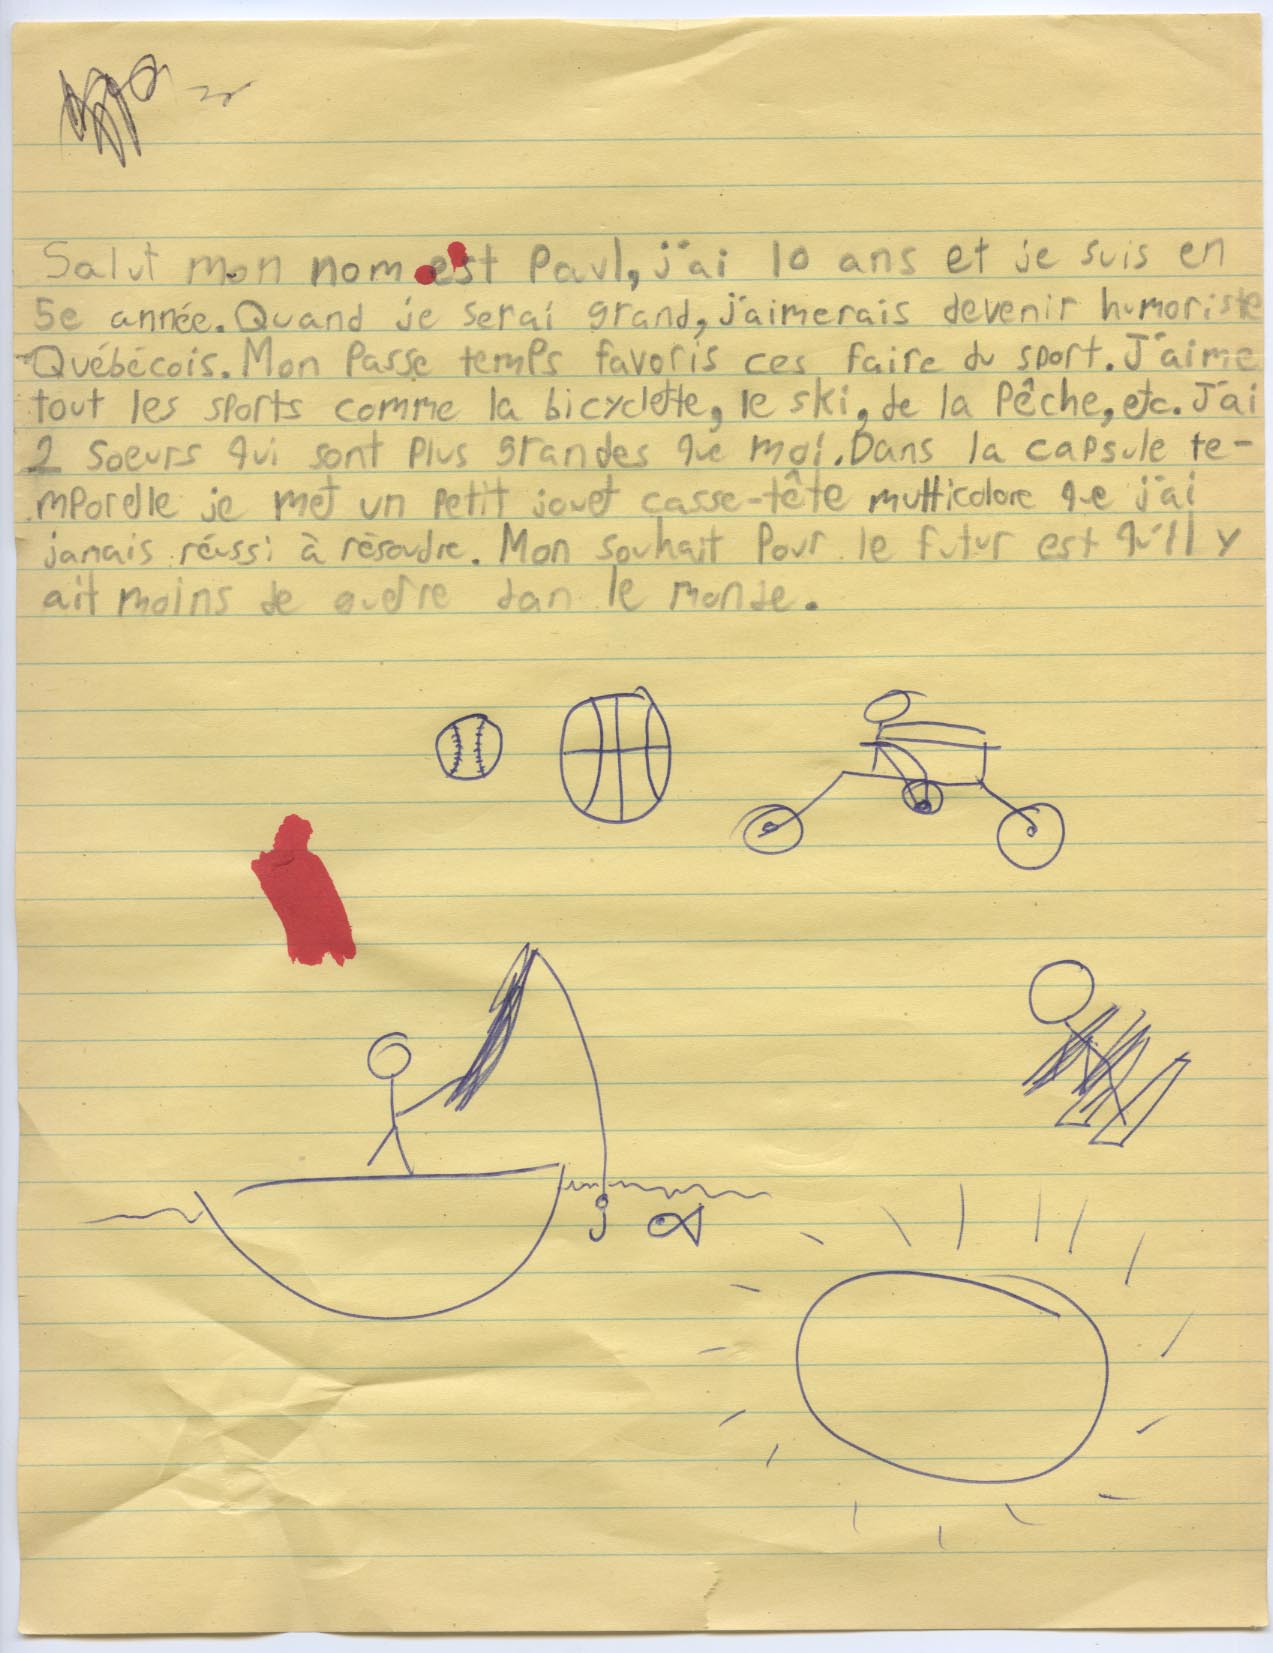 Salut mon nom est Paul, j'ai 10 ans et je suis en
5e année. Quand je serai grand, j'aimerais devenir humoriste
Québécois. Mon Passe temps favoris ces faire du sport. J'aime
tout les sports comme la bicyclette, le ski, de la Pêche, etc. J'ai
2 soeurs qui sont plus grandes que moi. Dans la capsule te-
mporelle je met un petit jouet casse-tête multicolore que j'ai
jamais réussi à résoudre. Mon souhait pour le futur est qu'il y
ait moins de guerre dan le monde.